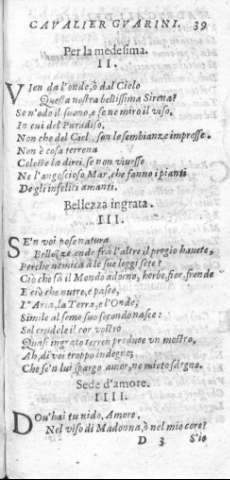 CAVALIER GVARINI. 39
Per la medesima.
II.
VIen da l'onde, ò dal Cielo
Questa nostra bellissima Sirena?
Se n'odo il suono, e se ne miro il viso,
In cui del Paradiso,
Non che del Ciel, son le sembianze impresse.
Non è cosa terrena
Celeste la direi, se non vivesse
Ne l'angoscioso Mar, che fanno i pianti
De gli infelici amanti.
Bellezza ingrata.
III.
SE'n voi pose natura
Bellezze onde frà l'altre il pregio havete,
Perche nemica à le sue leggi sete?
Ciò che fà il Mondo adorno, herbe, fior, fronde
E ciò che nutre, e pasce,
L'Aria, la Terra, e l'Onde;
Simile al seme suo fecondo nasce:
Sol crudele il cor vostro
Quasi ingrato terren produce un mostro.
Ah, di voi troppo indegno;
Che se'n lui spargo amor, ne mieto sdegno.
Sede d'amore.
IIII.
DOv'hai tu nido, Amore,
Nel viso di Madonna, ò nel mio core?
D 3 S'io